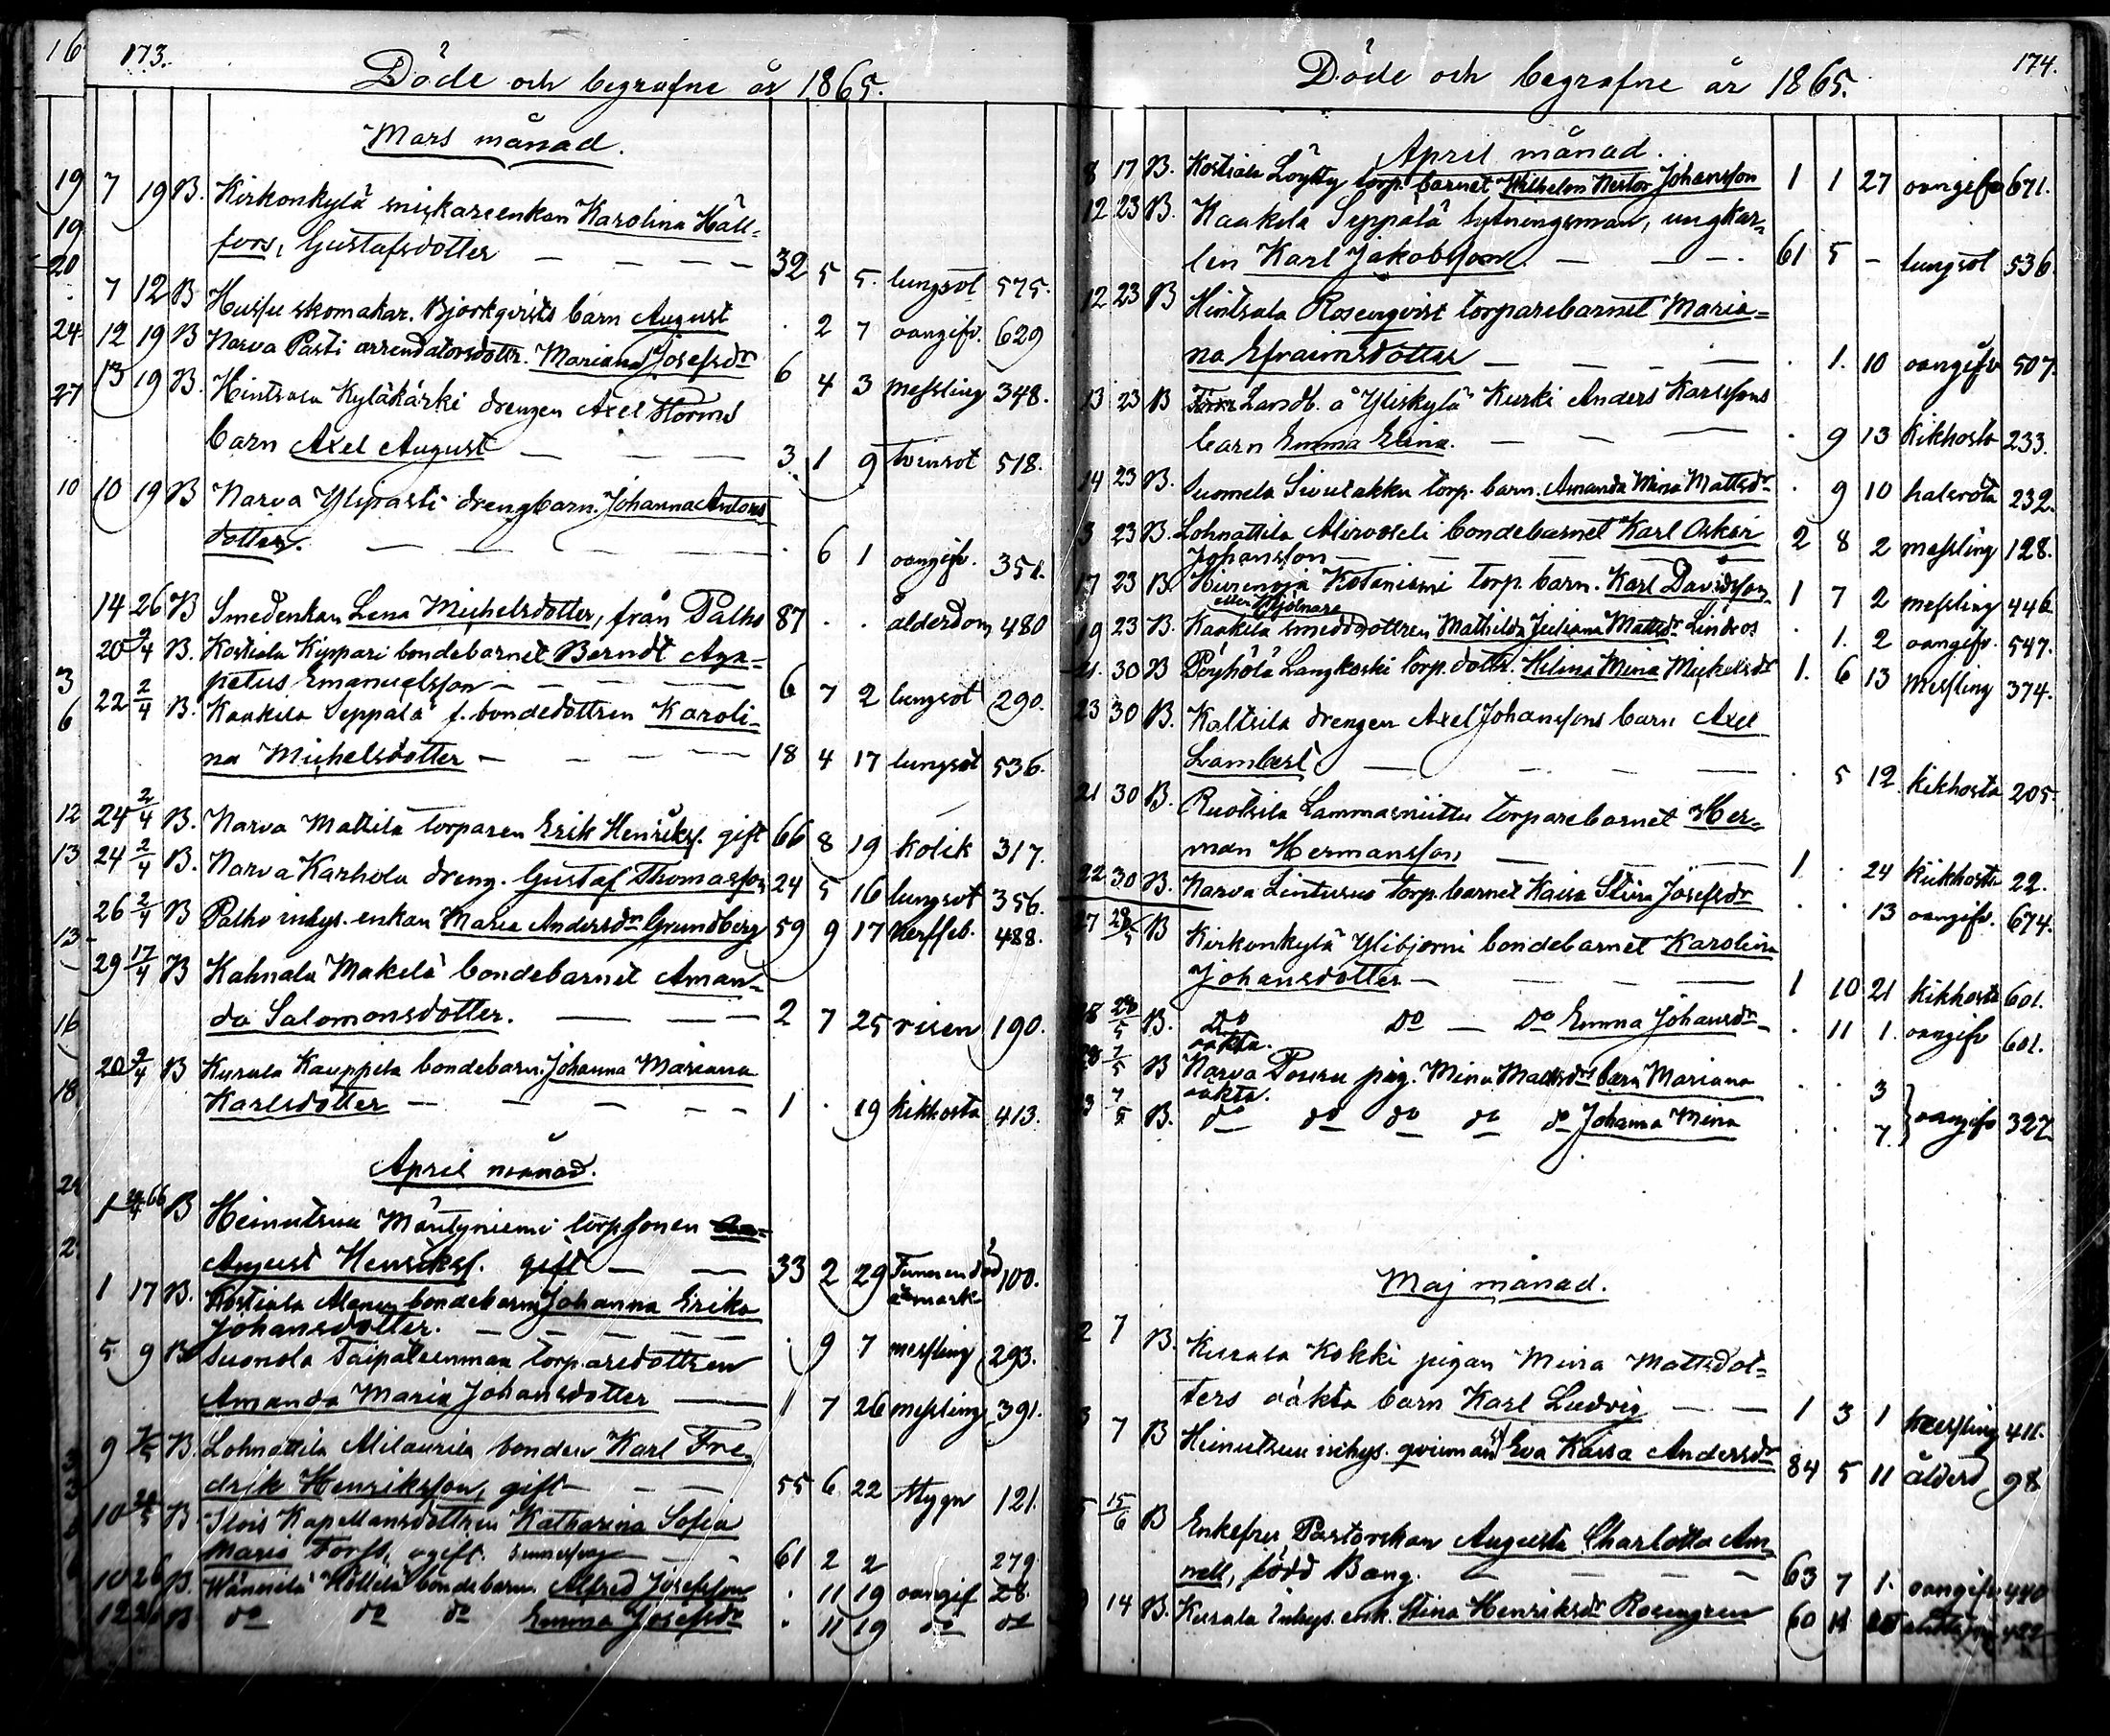 16
173.
Döde och begrafne år 1865.
Mars månad.
7 19 B. Kirkonkylä snickareenkan Karolina Häll-
fors, Gustafsdotter — — — 32 5 5. lungsot 575.
7 12 B Huffu skomakar. Björkqvists barn August . 2 7 oangifv. 629
12 19 B Narva Pasti arrendatorsdottr. Mariana Josefsdr 6 4 3 messling 348.
13 19 B. Hintsala Kyläkärki drengen Axel Storms
barn Axel August — — — 3 1 9 tvinsot 518.
10 19 B Narva Ylipasti drengbarn. Johanna Antons
dotter. — — — — . 6 1 oangifv. 351.
14 26 B Smedenkan Lena Michelsdotter, från Palho 87 . . ålderdom 480
20 2/4 B. Kostiala Kippari bondebarnet Berndt Aga-
petus Emanuelsson — — — 6 7 2 lungsot 290.
22 2/4 B. Kaakila Seppälä f. bondedottren Karoli-
na Michelsdotter — — — 18 4 17 lungsot 536.
24 2/4 B. Narva Mattila torparen Erik Henriksf. gift 66 8 19 kolik 317.
24 2/4 B. Narva Karhola dreng. Gustaf Thomasson 24 5 16 lungsot 356.
26 2/4 B Palho inhys. enkan Maria Andersdr Grundberg 59 9 17 nerffeb. 488.
29 17/4 B Kahnala Makelä bondebarnet Aman-
da Salomonsdotter. — — — 2 7 25 risen 190.
20 2/4 B Kurala Kauppila bondebarn. Johanna Mariana
Karlsdotter — — — 1 . 19 kikhosta 413.
April månad.
1 66 B Heinutuu Mäntyniemi torpsonen
August Henriksf. gift — — 33 2 29 Funnen död å mark 100.
1 17 B. Kostiala Alanen bondebarn Johanna Erika
Johansdotter. — — — . 9 7 messling 293.
5 9 B Suonola Taipaleenmaa torparedottren
Amanda Maria Johansdotter — 1 7 26 messling 391.
9 B. Lohnattila Alilaurila bonden Karl Fre-
drik Henriksson, gift — — 55 6 22 stygn 121.
10 B. Ilois Kapellansdottren Katharina Sofia
Maria Forss, ogift. — — 61 2 2 279
10 26 B. Wännilä Köllelä bondebarn. Alfred Josefsson . 11 19 oangif 28.
12 26 B do do do Emma Josefsdr . 11 19 do do
174.
Döde och begrafne år 1865.
April månad.
8 17 B. Kostiala Löytty torp. barnet Wilhelm Nestor Johansson 1 1 27 oangifv 671.
12 23 B. Kaakila Seppälä sytningsman, ungkar-
len Karl Jakobsson. — — 61 5 - lungsot 536.
12 23 B Hintsala Rosenqvist torparebarnet Maria-
na Efraimsdotter — — — . 1. 10 oangifv 507.
13 23 B Landb. å Yliskylä Kurki Anders Karlssons
barn Emma Elina. — — — . 9 13 kikhosta 233.
14 23 B. Suomela Sivulakka torp. barn. Amanda Mina Mattsdr . 9 10 halsröta 232.
3 23 B. Lohnattila Alivoseli bondebarnet Karl Oskar
Johansson — — — 2 8 2 messling 128.
17 23 B. Hirvenoja Kotoniemi torp. barn. Karl Davidsson 1 7 2 messling 446
eller Mjölnare
19 23 B. Kaakila smeddottren Mathilda Juliana Mattsdr Lindroos . 1. 2 oangifv. 547.
21. 30 B Pöyhölä Langkoski torp. dottr. Helena Mina Michelsdr 1. 6 13 messling 374.
23 30 B. Kaltsila drengen Axel Johanssons barn Axel
Lambert — — — . 5 12 kikhosta 205.
21 30 B. Ruotsila Lammasniittu torparebarnet Her-
man Hermansson — — 1 . 24 kikhosta 22.
22 30 B. Narva Linturus torp. barnet Kaisa Stina Josefsdr . . 13 oangifv. 674.
27 28/5 B Kirkonkylä Ylibjörni bondebarnet Karolina
Johansdotter — — — 1 10 21 kikhosta 601.
28 28/5 B. Do Do — Do Emma Johansdr — . 11 1. oangifv 601.
oäkta.
28 7/5 B Narva Pouru pig. Mina Mattsdrs barn Mariana . . 3
oäkta.
7/5 B. do do do do do Johanna Mina . . 7 } oangifv 327
Maj månad.
2 7 B. Kurala Kokki pigan Mina Mattsdot-
ters oäkta barn Karl Ludvig — — 1 3 1 messling 411.
3 7 B Heinutuu inhys. qvinnan Eva Kaisa Andersdr 84 5 11 ålderd. 98
5 15/6 B Enkefru, Pastorskan Augusta Charlotta Am-
nell, född Bang. — — — 63 7 1. oangifv 440
14 B. Kurala Inhys. enk. Stina Henriksdr Rosengren 60 11